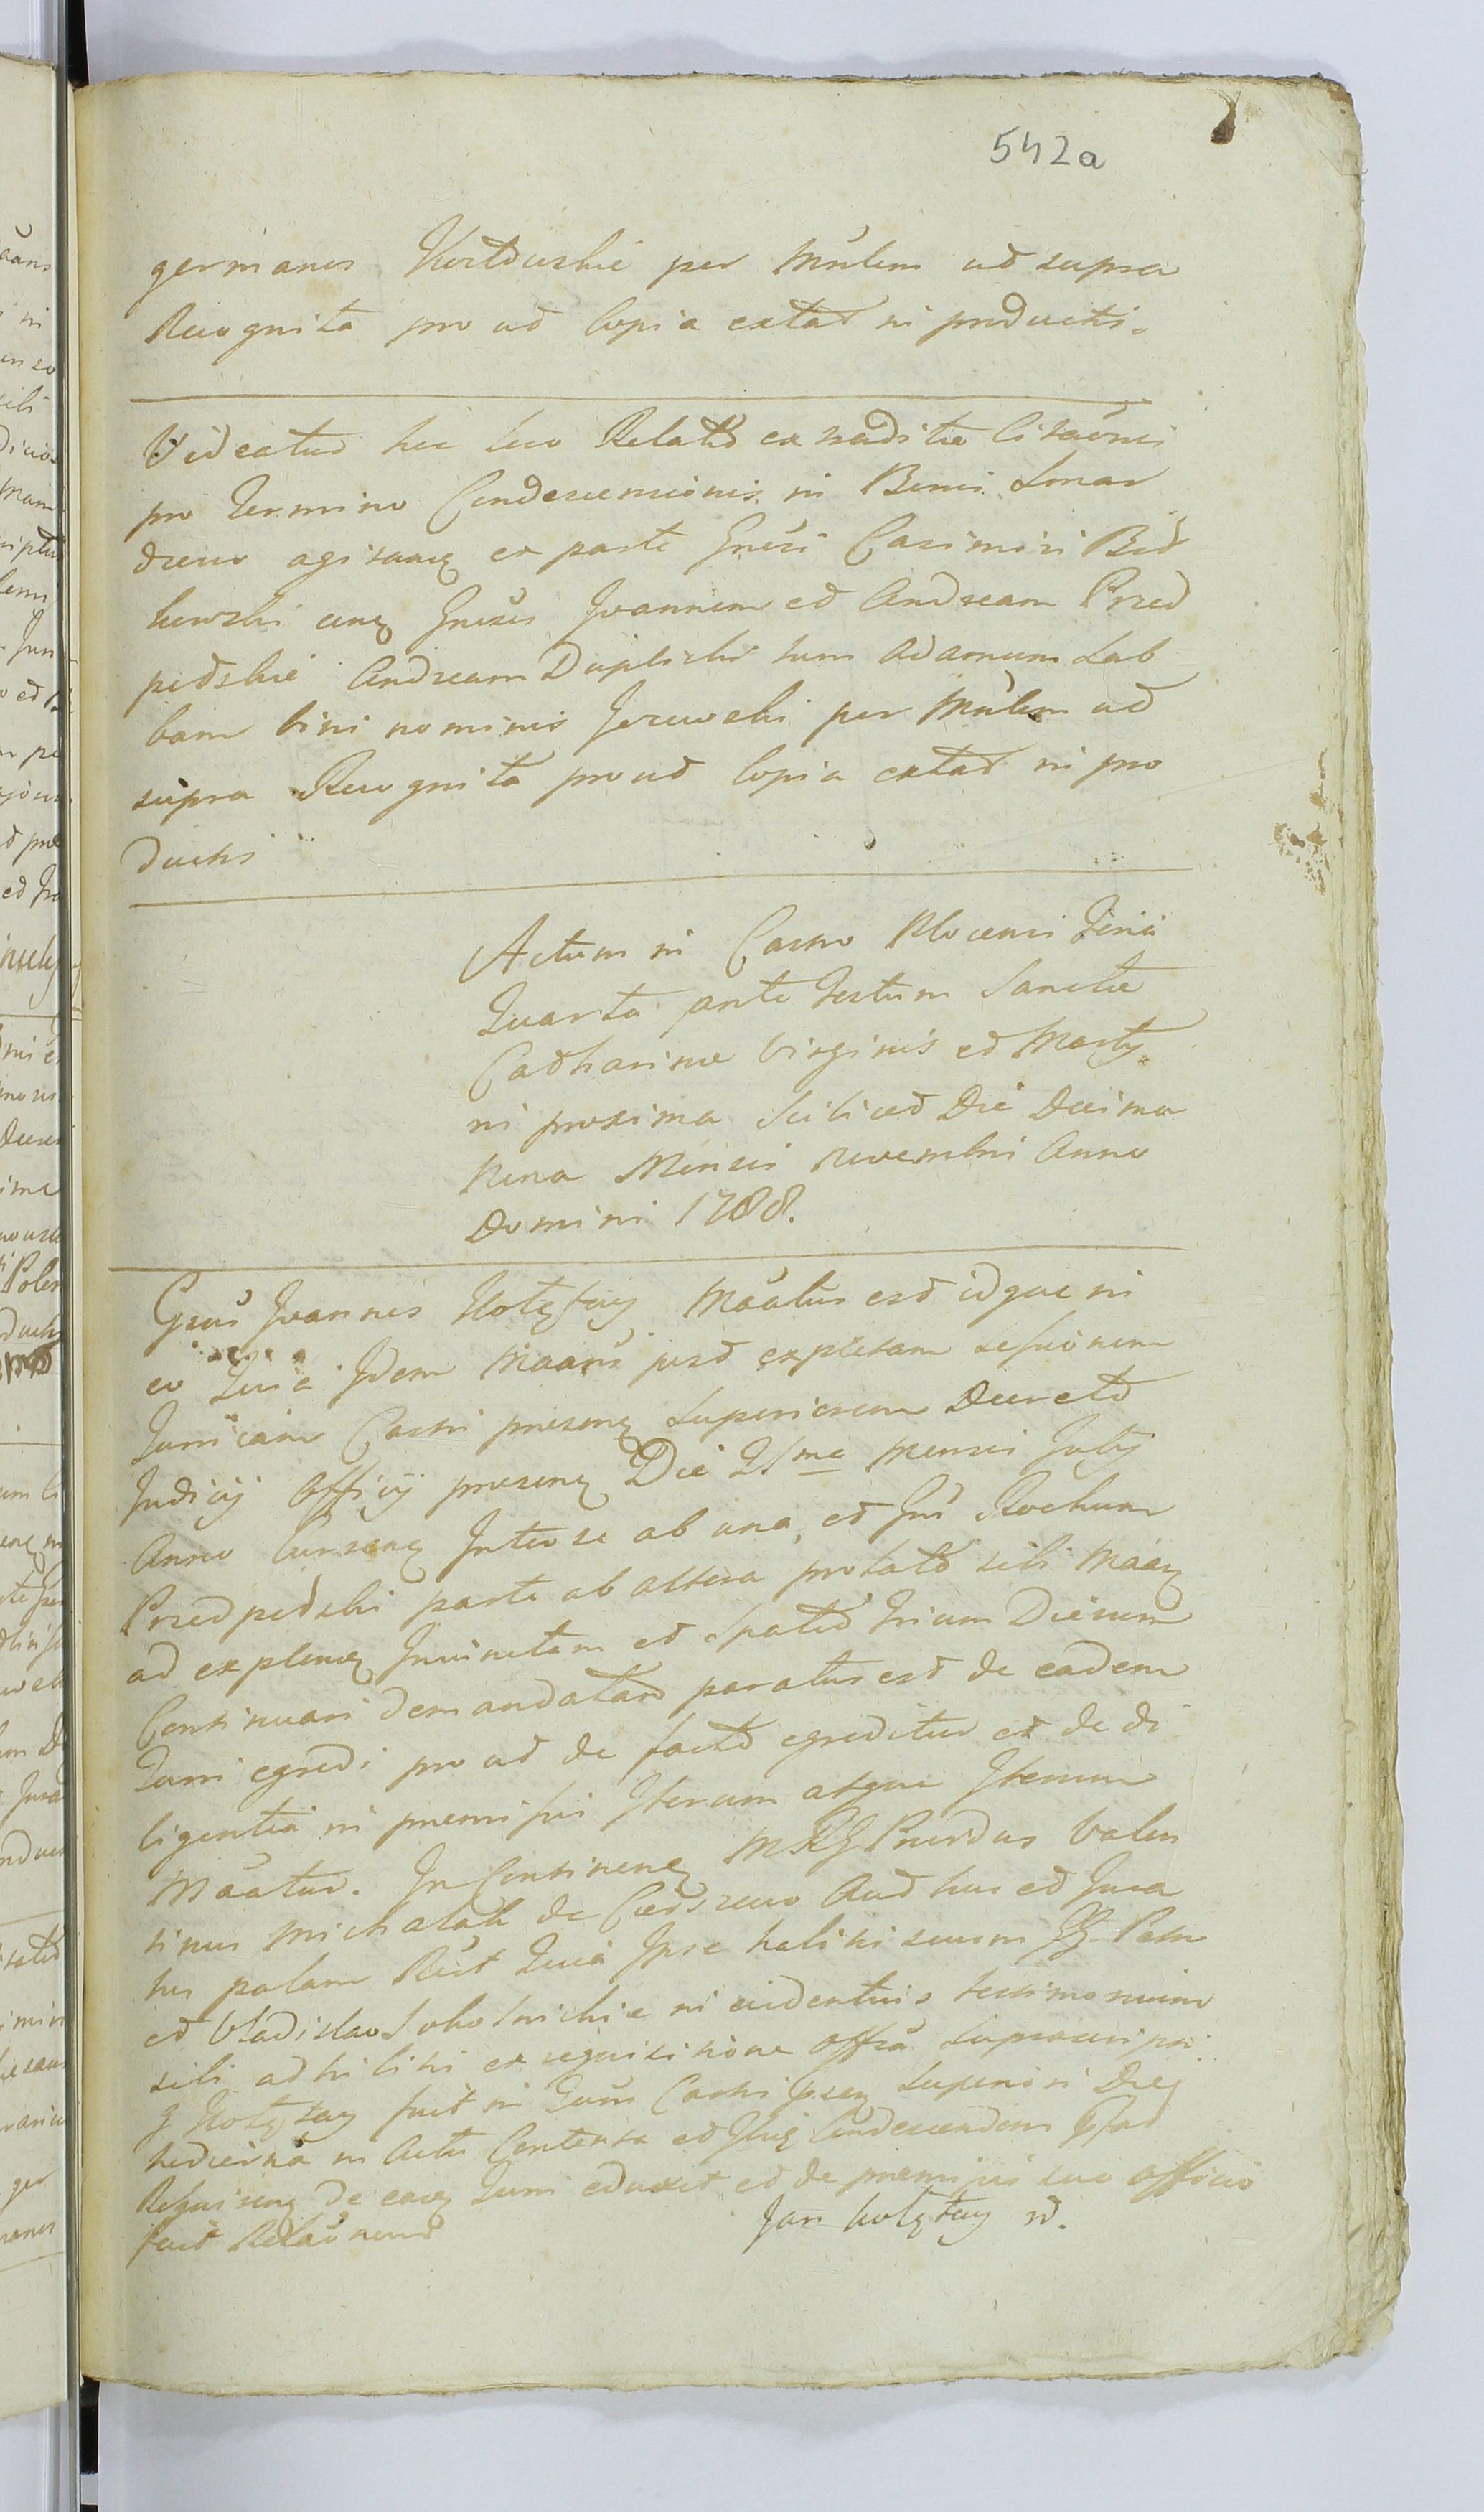 542a
germanos Kostuskie per Mnlem ut supra
Recognita pro ut Copia extat in producti.
Videatur hic loco Relatio ex tradita Citaōnis
pro Termino Condescensionis in Bonis Smar
drewo agitanᵉ ex parte Gnēsi Casimiri Biet
kowski conᵉ Gnēsos Joannem et Andream Przed
petskie Andream Duplicki tum Adamum Sab
bam bini nominis Jezewski per Mnlem ut
supra Recognita pro ut Copia extat in pro
ductis
Actum in Castro Plocensi Feria
Quarta ante Festum Sanctæ
Catharinæ Virginis et Marty
ni proxima Scilicet Die Decima
Nona Mensis Novembris Anno
Domini 1788.
Gnsūs Joannes Kołątay Māatus est idque in
eo Quia Idem Maans post expletam sessionem
Turri Castri presenᵉ Superiorem Decreto
Judicij Officij presenᵉ Die 21ma Mensis July
Anno Cursenᵉ Inter se ab una, et Gn̄ Rochum
Przedpetski parte ab altera prolato sibi Maanᵉ
ad explenᵉ Injunctam et Spatio trium Dierum
Continuari demandatam paratus est de eadem
Turri egredi pro ut de facto egreditur et de di
ligentia in premissis Iterum atque Iterum
Māatur. In Continenᵉ MRG Provdus Valen
tinus Michalak de Cierszewo Authus et Jura
tus palam Rēt Quia Ipse habitis secum GG. Petro
et Vladislao Sokolnickie in evidentius testimonium
sibi adhibitis ex requisitione offrā suprascripti
G Kołątay fuit in Turri Castri pseᵉ Superiori Die
hodierna in Actu Contenta et Illuᵉ Condescendem
Rebuisenᵉ de eaᵉ Turri eduxit et de premissis suo officio
facit Relaōnem
Jan Kołątay